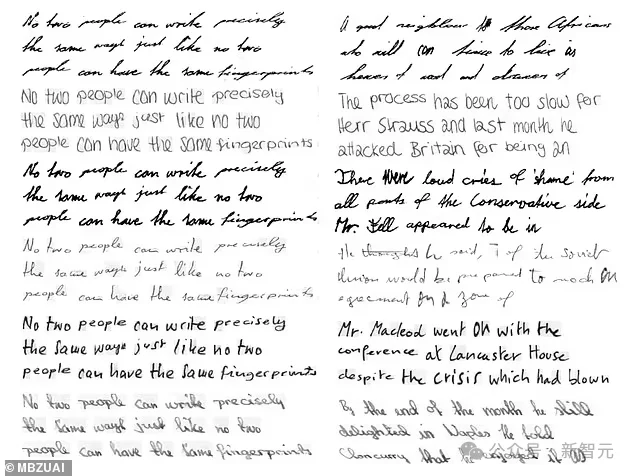 No two people can write precisely
the same ways just like no two
people can have the same fingerprints
No two people can write precisely
the same ways just like no two
people can have the same fingerprints
No two people can write precisely
the same ways just like no two
people can have the same fingerprints
No two people can write precisely
the same ways just like no two
people can have the same fingerprints
No two people can write precisely
the same ways just like no two
people can have the same fingerprints
No two people can write precisely
the same ways just like no two
people can have the same fingerprints
© MBZUAI
A good neighbour those Africans
who will to live as
hewers of wood and drawers of
The process has been too slow for
Herr Strauss and last month he
attacked Britain for being an
There were loud cries of 'shame' from
all parts of the Conservative side
Mr. appeared to be in
He he said, of the Soviet
Union would be prepared to
agreement on a zone of
Mr. Macleod went on with the
conference at Lancaster House
despite the crisis which had blown
By the end of the month he still
delighted in he told
that he enjoyed it
公众号·新智元